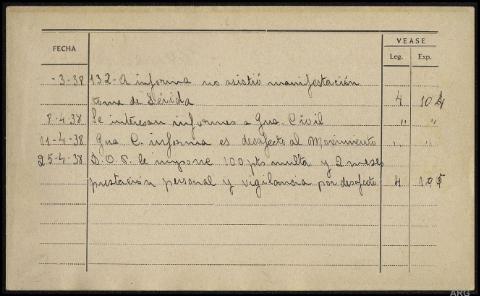 VEASE
FECHA Leg. Exp.
-3-38 132-A informa no asistió manifestación
toma de Lérida 4 104
8-4-38 Se intresan informes a Gua. Civil " "
11-4-38 Gua. C. informa es desafecto al Movimiento " "
25-4-38 D.O.P. le impone 100 pts multa y 2 meses
prestación personal y vigilancia por desafecto 4
ARG